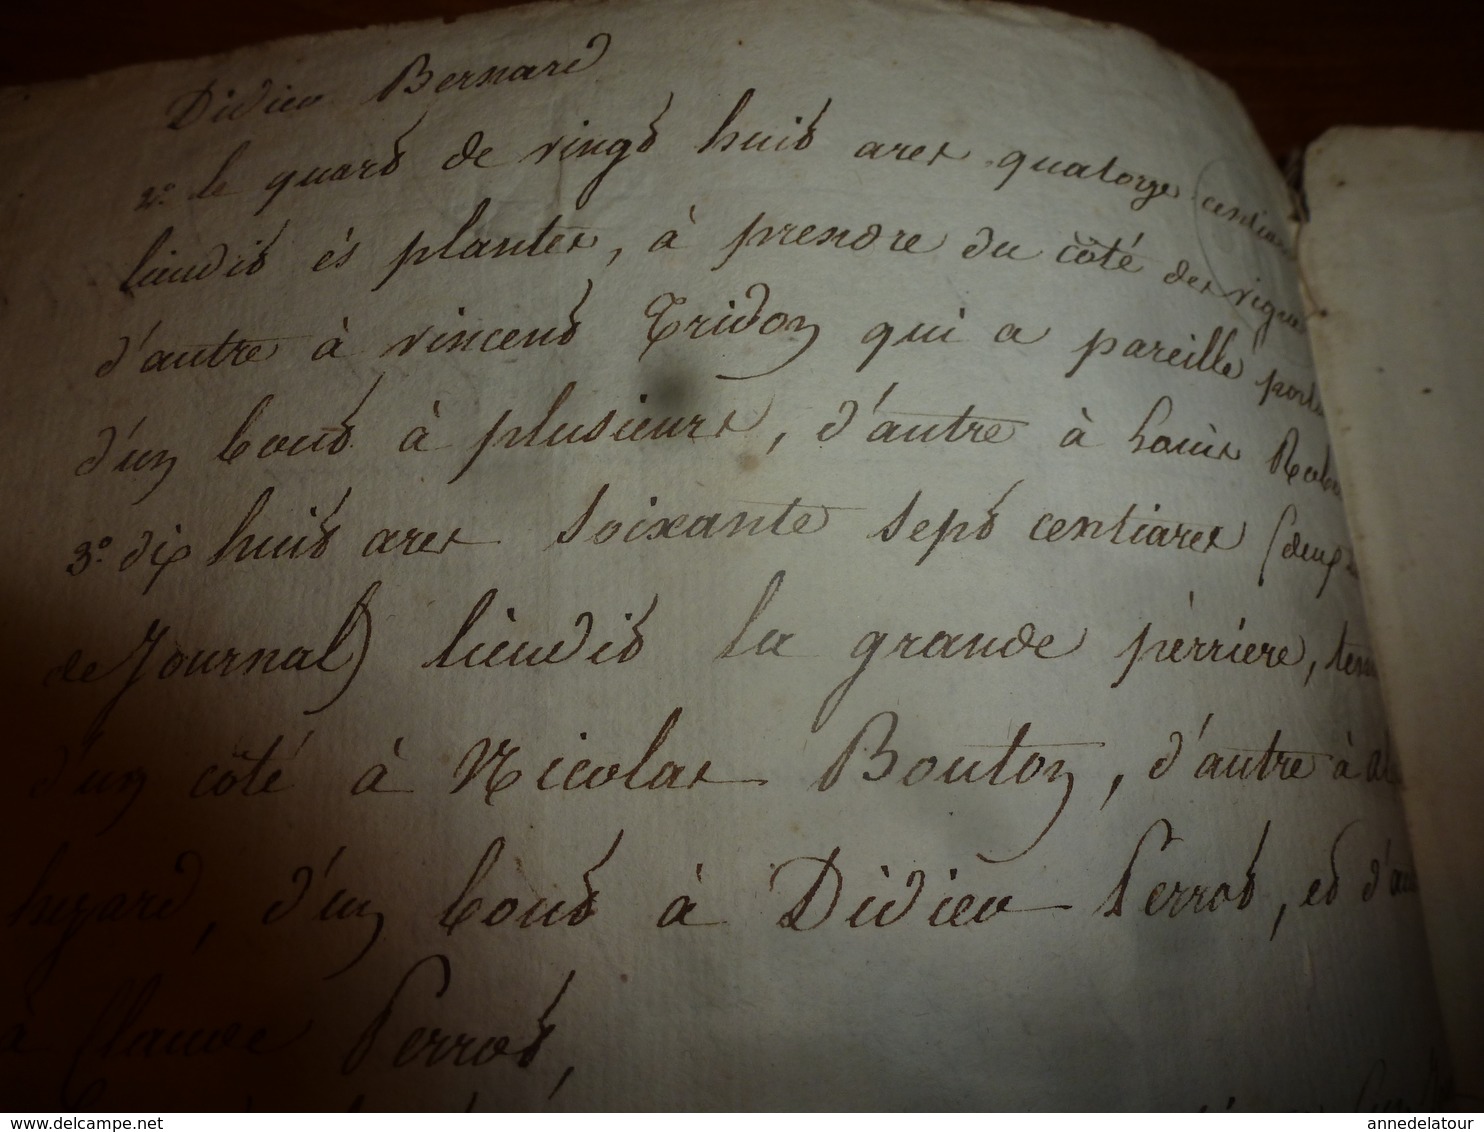 Didier Bernard
2.° le quart de vingt huit ares quatorze centiares
lieudit ès plantes, à prendre du côté des vignes
d'autre à vincent Tridon qui a pareille
d'un bout à plusieurs, d'autre à Louis
3.° dix huit ares soixante sept centiares (deux
de Journal) lieudit la grande pèrriere,
d'un côté à Nicolas Bouton, d'autre à
d'un bout à Didier Perrot, et
à Claude Perrot,
www.delcampe.net
annedelatour